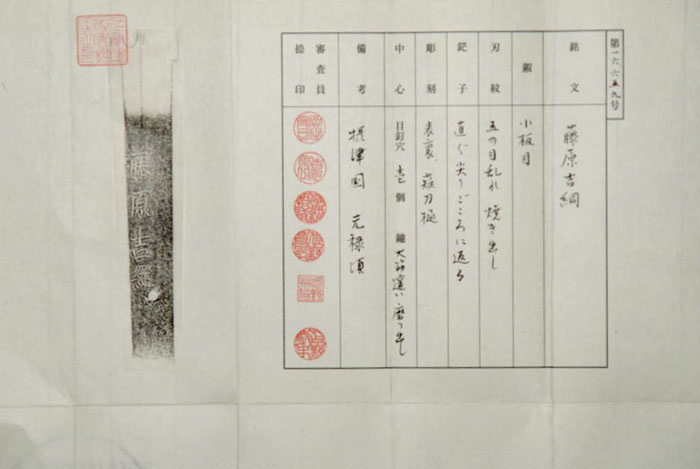 第一六六五九号
銘文 藤原吉綱
鍛 小板目
刃紋 五の目乱れ 焼き出し
鋩子 直ぐ尖りごころに返る
彫刻 表裏 薙刀樋
中心 目釘穴 壱個 鑢 大筋違い磨り出し
備考 摂津国 元禄頃
審査員捺印
藤原吉綱